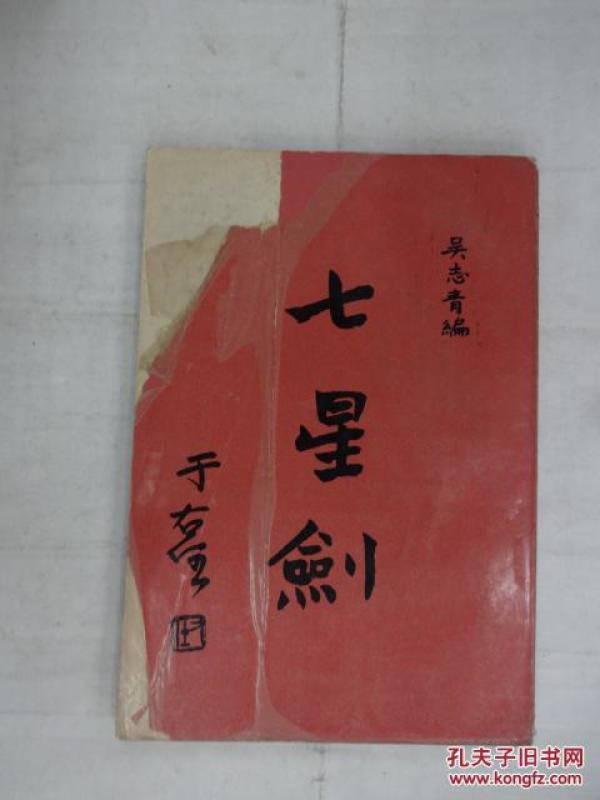 吴志青編
七星劍
于右任
孔夫子旧书网
www.kongfz.com